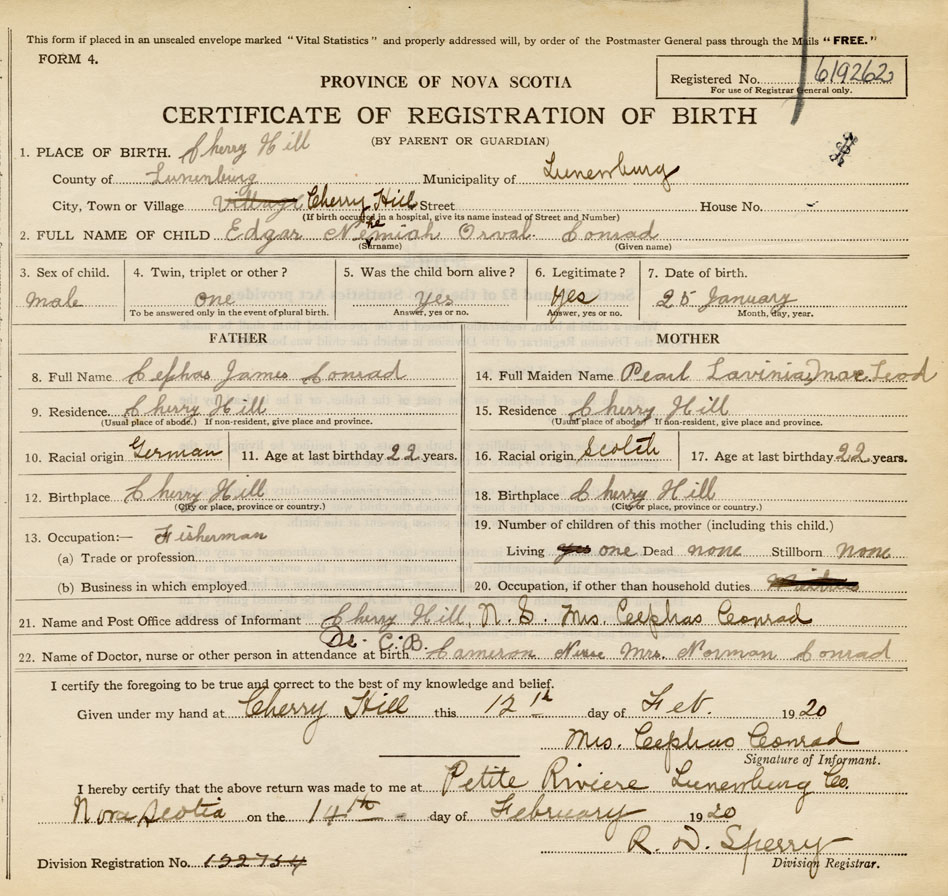 This form if placed in an unsealed envelope marked "Vital Statistics" and properly addressed will, by order of the Postmaster General pass through the Mails "FREE."
FORM 4.
PROVINCE OF NOVA SCOTIA
Registered No. 619262
For use of Registrar General only.
CERTIFICATE OF REGISTRATION OF BIRTH
(BY PARENT OR GUARDIAN)
1. PLACE OF BIRTH. Cherry Hill
County of Lunenburg Municipality of Lunenburg
City, Town or Village Village Cherry Hill Street House No. -
(If birth occurred in a hospital, give its name instead of Street and Number)
2. FULL NAME OF CHILD Edgar Nehemiah Orval Conrad
(Surname) (Given name)
3. Sex of child. 4. Twin, triplet or other? 5. Was the child born alive? 6. Legitimate? 7. Date of birth.
male one Yes Yes 25 January
To be answered only in the event of plural birth. Answer, yes or no. Answer, yes or no. Month, day, year.
FATHER MOTHER
8. Full Name Cephas James Conrad 14. Full Maiden Name Pearl Lavinia Mac Leod
9. Residence. Cherry Hill 15. Residence Cherry Hill
(Usual place of abode.) If non-resident, give place and province. (Usual place of abode) If non-resident, give place and province.
10. Racial origin German 11. Age at last birthday 22 years. 16. Racial origin Scotch 17. Age at last birthday 22 years.
12. Birthplace Cherry Hill 18. Birthplace Cherry Hill
(City or place, province or country.) (City or place, province or country.)
13. Occupation:— Fisherman 19. Number of children of this mother (including this child.)
(a) Trade or profession Living yes one Dead none Stillborn none
(b) Business in which employed 20. Occupation, if other than household duties
21. Name and Post Office address of Informant Cherry Hill, N. S. Mrs. Cephas Conrad
22. Name of Doctor, nurse or other person in attendance at birth Dr. C. B. Cameron Nurse Mrs. Norman Conrad
I certify the foregoing to be true and correct to the best of my knowledge and belief.
Given under my hand at Cherry Hill this 12th day of Feb. 1920
Mrs. Cephas Conrad
Signature of Informant.
I hereby certify that the above return was made to me at Petite Riviere Lunenburg Co.
Nova Scotia on the 14th day of February 1920
R. D. Sperry
Division Registrar.
Division Registration No. 122754